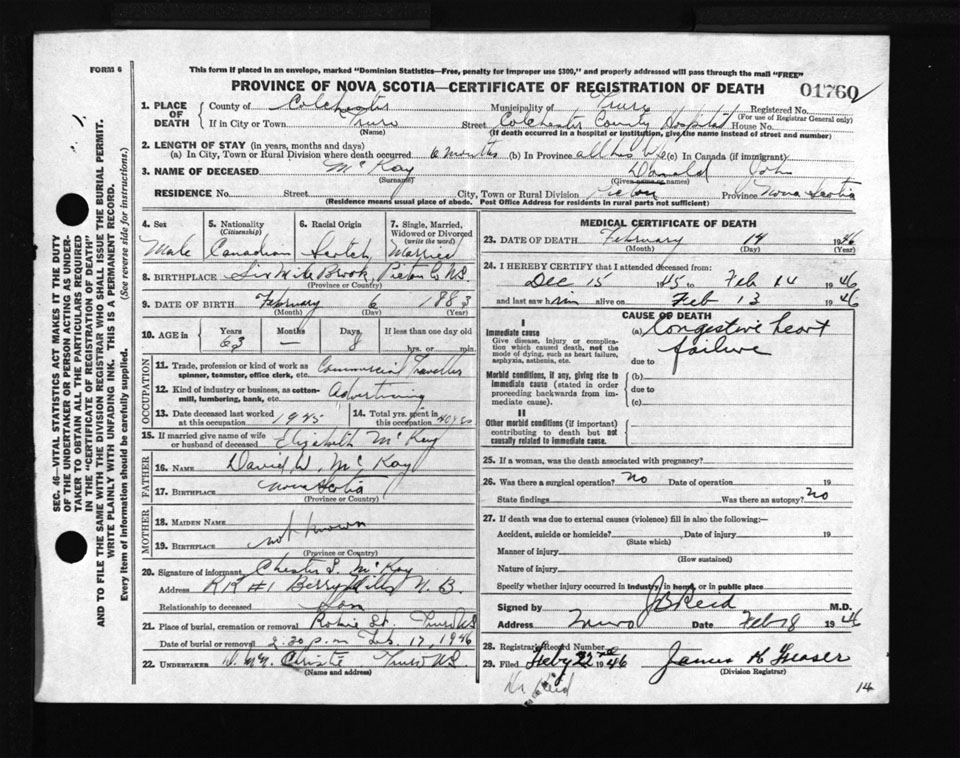 FORM 6
This form if placed in an envelope, marked "Dominion Statistics—Free, penalty for improper use $300," and properly addressed will pass through the mail "FREE"
PROVINCE OF NOVA SCOTIA—CERTIFICATE OF REGISTRATION OF DEATH
01760
1. PLACE OF DEATH
County of Colchester Municipality of Truro Registered No.
(For use of Registrar General only)
If in City or Town Truro Street Colchester County Hospital House No.
(Name) (If death occurred in a hospital or institution, give the name instead of street and number)
2. LENGTH OF STAY (in years, months and days)
(a) In City, Town or Rural Division where death occurred 6 months (b) In Province all his life (c) In Canada (if immigrant)
3. NAME OF DECEASED McKay Donald John
(Surname) (Given name or names)
RESIDENCE No. Street City, Town or Rural Division Pictou Province Nova Scotia
(Residence means usual place of abode. Post Office Address for residents in rural parts not sufficient)
4. Sex 5. Nationality (Citizenship) 6. Racial Origin 7. Single, Married, Widowed or Divorced (write the word)
Male Canadian Scotch Married
8. BIRTHPLACE Six Mile Brook, Pictou Co N.S.
(Province or Country)
9. DATE OF BIRTH February 6 1883
(Month) (Day) (Year)
10. AGE in Years Months Days If less than one day old
63 — 8 hrs. or min.
OCCUPATION
11. Trade, profession or kind of work as spinner, teamster, office clerk, etc. Commercial Traveller
12. Kind of industry or business, as cotton-mill, lumbering, bank, etc. Advertising
13. Date deceased last worked at this occupation 1945 14. Total yrs. spent in this occupation 40 yrs
15. If married give name of wife or husband of deceased Elizabeth McKay
FATHER
16. NAME David W. McKay
17. BIRTHPLACE Nova Scotia
(Province or Country)
MOTHER
18. MAIDEN NAME
19. BIRTHPLACE not known
(Province or Country)
20. Signature of informant Chester McKay
Address RR #1 Berry Mills N.B.
Relationship to deceased son
21. Place of burial, cremation or removal Robie St. Truro NS
Date of burial or removal 2.30 p.m Feb. 17, 1946
22. UNDERTAKER Christie Truro N.S.
(Name and address)
MEDICAL CERTIFICATE OF DEATH
23. DATE OF DEATH February 14 1946
(Month) (Day)
24. I HEREBY CERTIFY that I attended deceased from:
Dec 15 1945 to Feb 14 1946
and last saw him alive on Feb 13 1946
CAUSE OF DEATH
I
Immediate cause (a) Congestive heart
Give disease, injury or complication which caused death, not the mode of dying, such as heart failure, asphyxia, asthenia, etc.
failure
due to
Morbid conditions, if any, giving rise to immediate cause (stated in order proceeding backwards from immediate cause).
(b)
due to
(c)
II
Other morbid conditions (if important) contributing to death but not causally related to immediate cause.
25. If a woman, was the death associated with pregnancy?
26. Was there a surgical operation? No Date of operation 19
State findings Was there an autopsy? No
27. If death was due to external causes (violence) fill in also the following:—
Accident, suicide or homicide? Date of injury 19
(State which)
Manner of injury
(How sustained)
Nature of injury
Specify whether injury occurred in industry, in home, or in public place
Signed by J B Reid M.D.
Address Truro Date Feb 18 1946
28. Registrar's Record Number
29. Filed Feby 22nd 1946 James K Fraser
(Division Registrar)
Reid
14
SEC. 46—VITAL STATISTICS ACT MAKES IT THE DUTY
OF THE UNDERTAKER OR PERSON ACTING AS UNDERTAKER
TO OBTAIN ALL THE PARTICULARS REQUIRED
IN THE "CERTIFICATE OF REGISTRATION OF DEATH"
AND TO FILE THE SAME WITH THE DIVISION REGISTRAR WHO SHALL ISSUE THE BURIAL PERMIT.
WRITE PLAINLY WITH UNFADING INK. THIS IS A PERMANENT RECORD.
Every item of information should be carefully supplied. (See reverse side for instructions.)